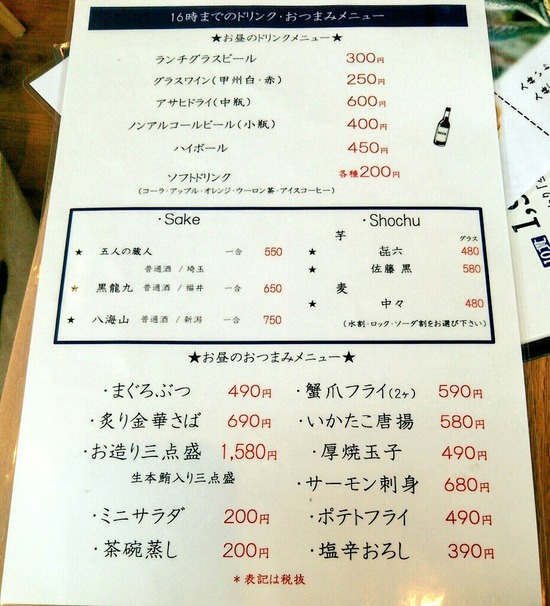 16時までのドリンク・おつまみメニュー
★お昼のドリンクメニュー★
ランチグラスビール 300円
グラスワイン(甲州 白・赤) 250円
アサヒドライ(中瓶) 600円
ノンアルコールビール(小瓶) 400円
ハイボール 450円
ソフトドリンク 各種200円
(コーラ・アップル・オレンジ・ウーロン茶・アイスコーヒー)
・Sake
★ 五人の蔵人 一合 550
普通酒 / 埼玉
★ 黒龍九 普通酒 / 福井 一合 650
★ 八海山 普通酒 / 新潟 一合 750
・Shochu
芋 グラス
★ 㐂六 480
★ 佐藤 黒 580
麦
★ 中々 480
(水割・ロック・ソーダ割をお選び下さい)
★お昼のおつまみメニュー★
・まぐろぶつ 490円
・炙り金華さば 690円
・お造り三点盛 1,580円
生本鮪入り三点盛
・ミニサラダ 200円
・茶碗蒸し 200円
・蟹爪フライ(2ヶ) 590円
・いかたこ唐揚 580円
・厚焼玉子 490円
・サーモン刺身 680円
・ポテトフライ 490円
・塩辛おろし 390円
*表記は税抜